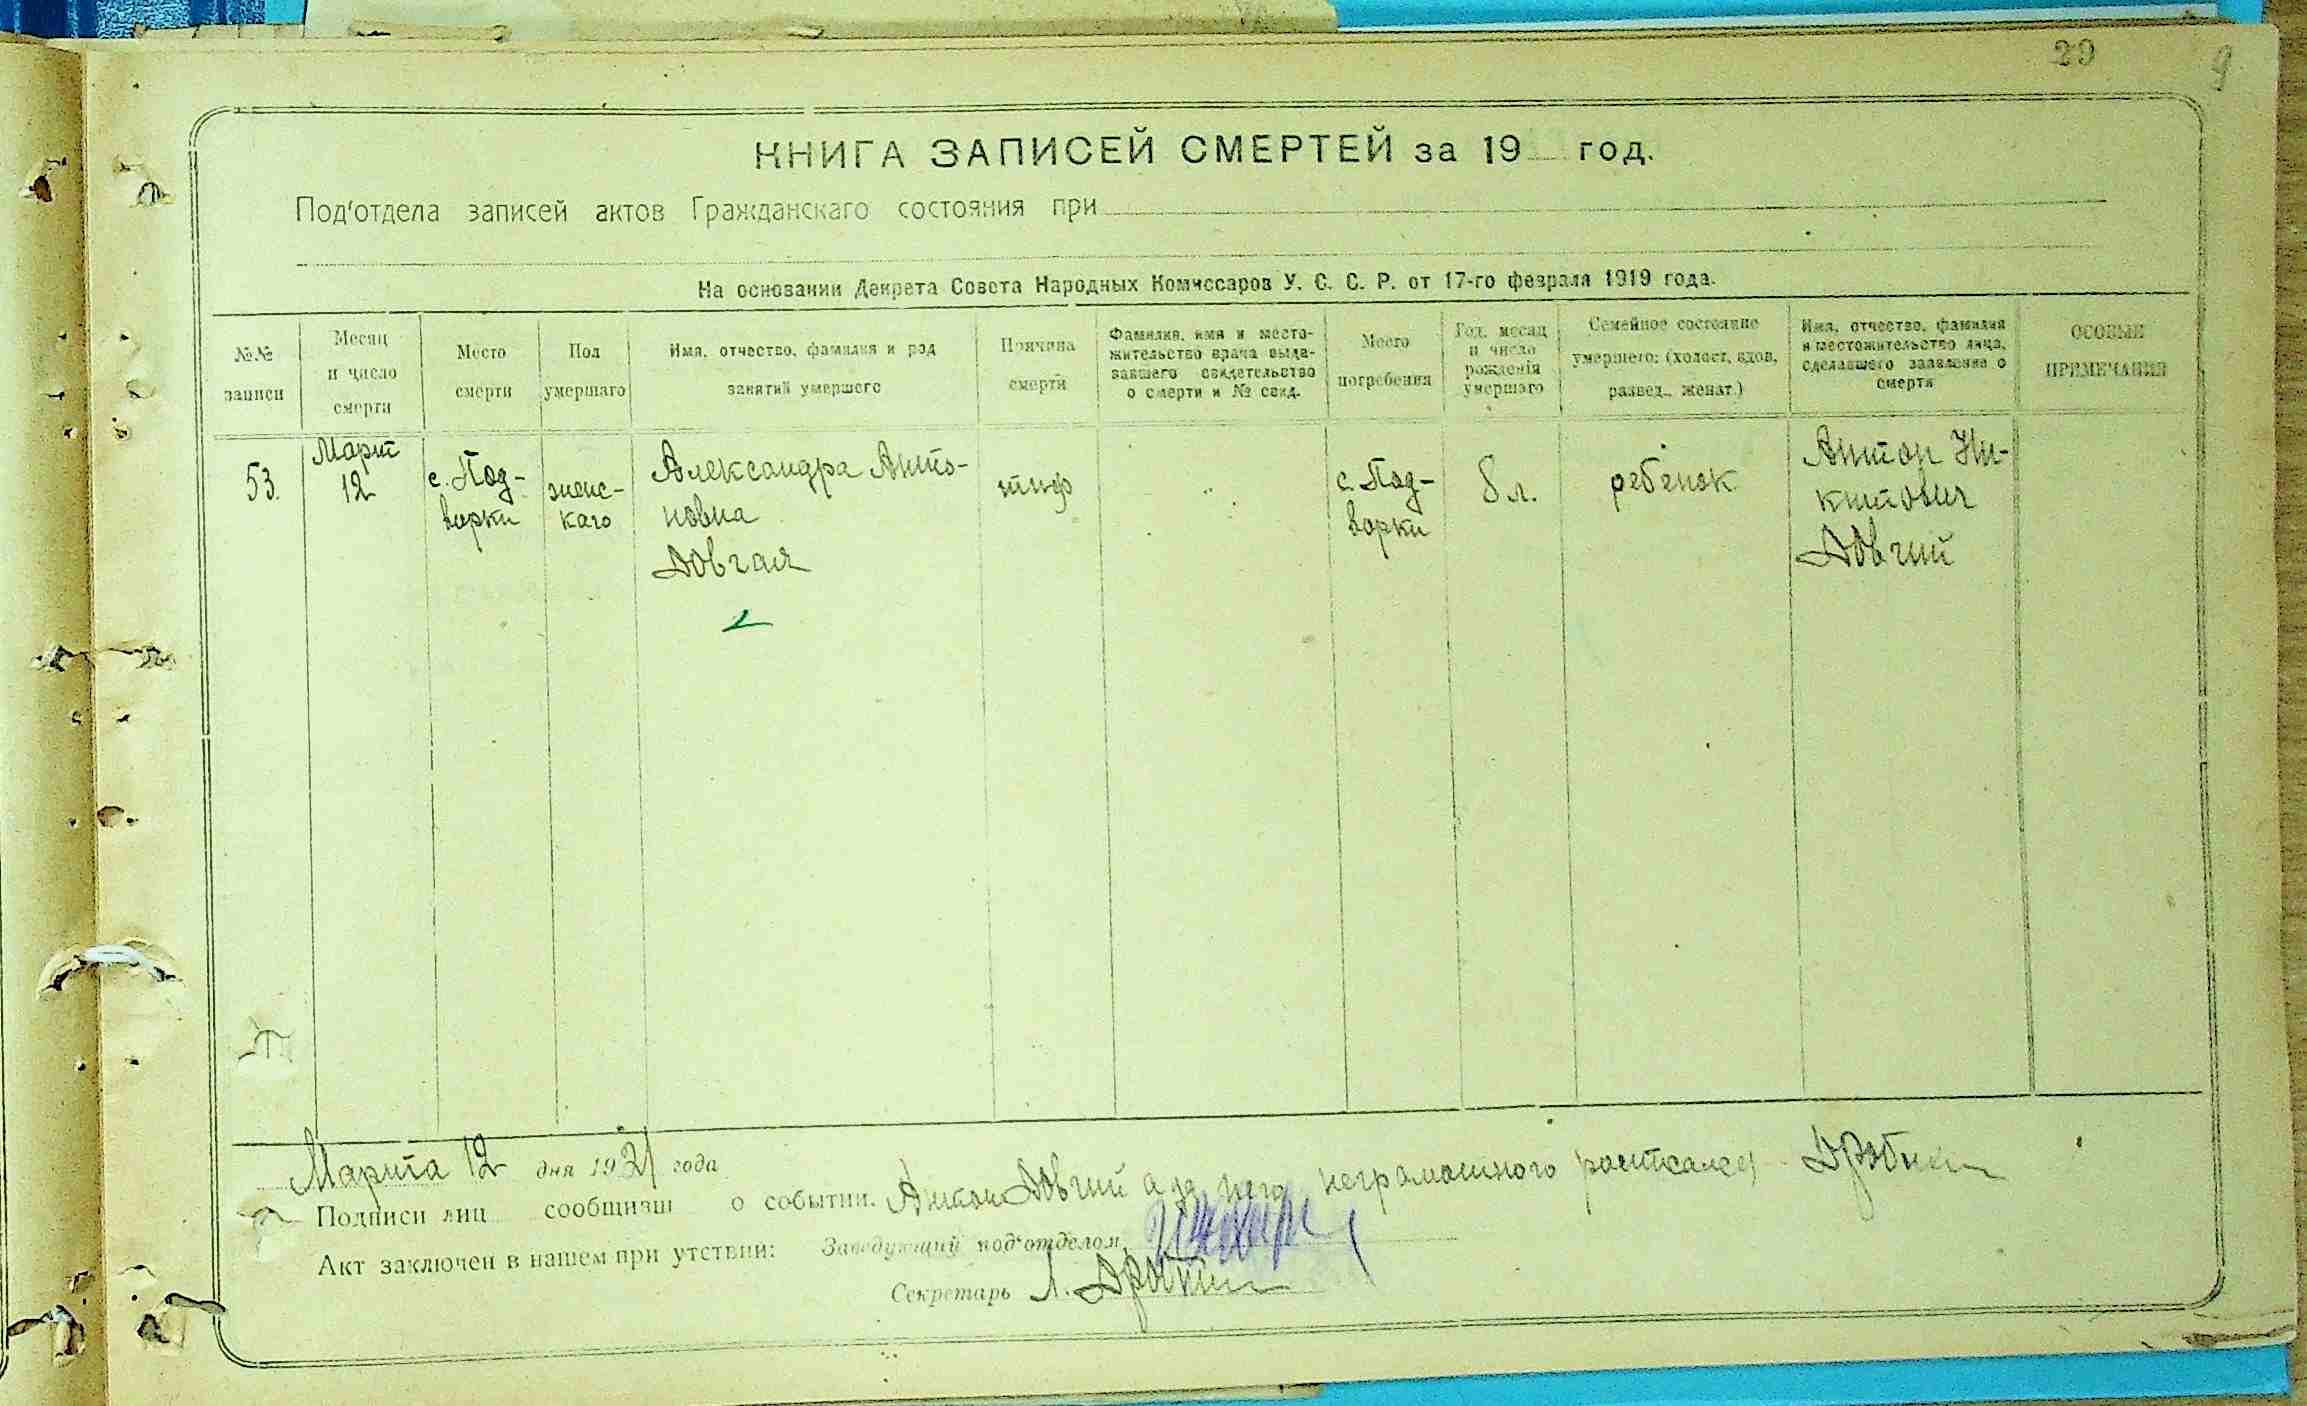 29
9
КНИГА ЗАПИСЕЙ СМЕРТЕЙ за 19 год.
Под'отдела записей актов Гражданскаго состояния при
На основании Декрета Совета Народных Комиссаров У. С. С. Р. от 17-го февраля 1919 года.
№№ записи
Месяц и число смерти
Место смерти
Пол умершаго
Имя, отчество, фамилия и род занятий умершего
Причина смерти
Фамилия, имя и место-жительство врача выда-вавшего свидетельство о смерти и № свид.
Место погребения
Год, месяц и число рождения умершаго
Семейное состояние умершего: (холост, вдов, развед., женат.)
Имя, отчество, фамилия и местожительство лица, сделавшего заявление о смерти
ОСОБЫЕ ПРИМЕЧАНИЯ
53.
Март
12
с. Под-
ворки
женс-
каго
Александра Анто-
новна
Довгая
тиф
с. Под-
ворки
8 л.
ребенок
Антон Ни-
китович
Довгий
Марта 12 дня 1921 года
Подписи лиц сообщивш о событии. Антон Довгий а за него неграмотного росписался
Акт заключен в нашем при утствии: Заведующий под'отделом
Секретарь Л.